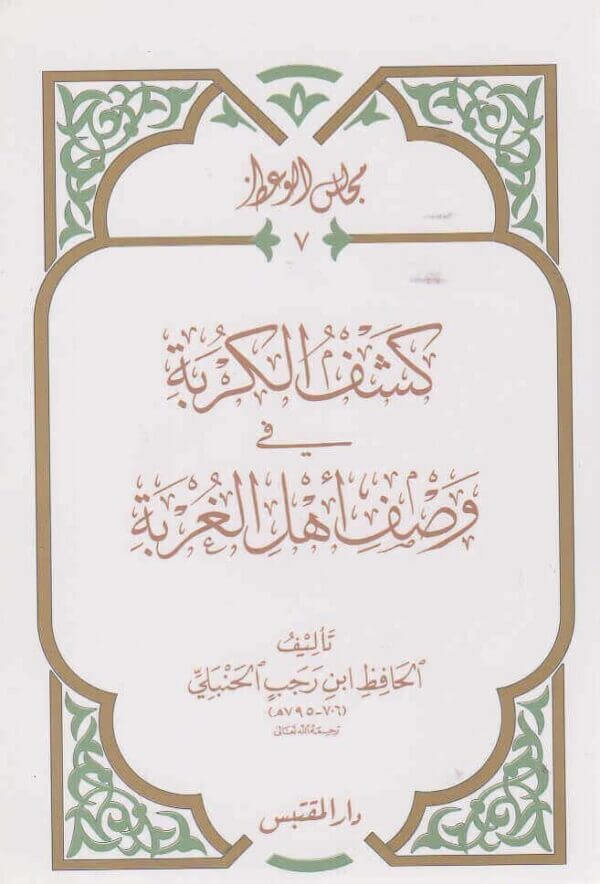 مجالس الوعظ
٧
كَشْفُ الكُرْبَةِ
فِي
وَصْفِ أَهْلِ الغُرْبَةِ
تَأْلِيْفُ
الحَافِظِ ابْنِ رَجَبٍ الحَنْبَلِيِّ
(٧٠٦-٧٩٥هـ)
رَحِمَهُ الله تَعَالَى
دار المقتبس